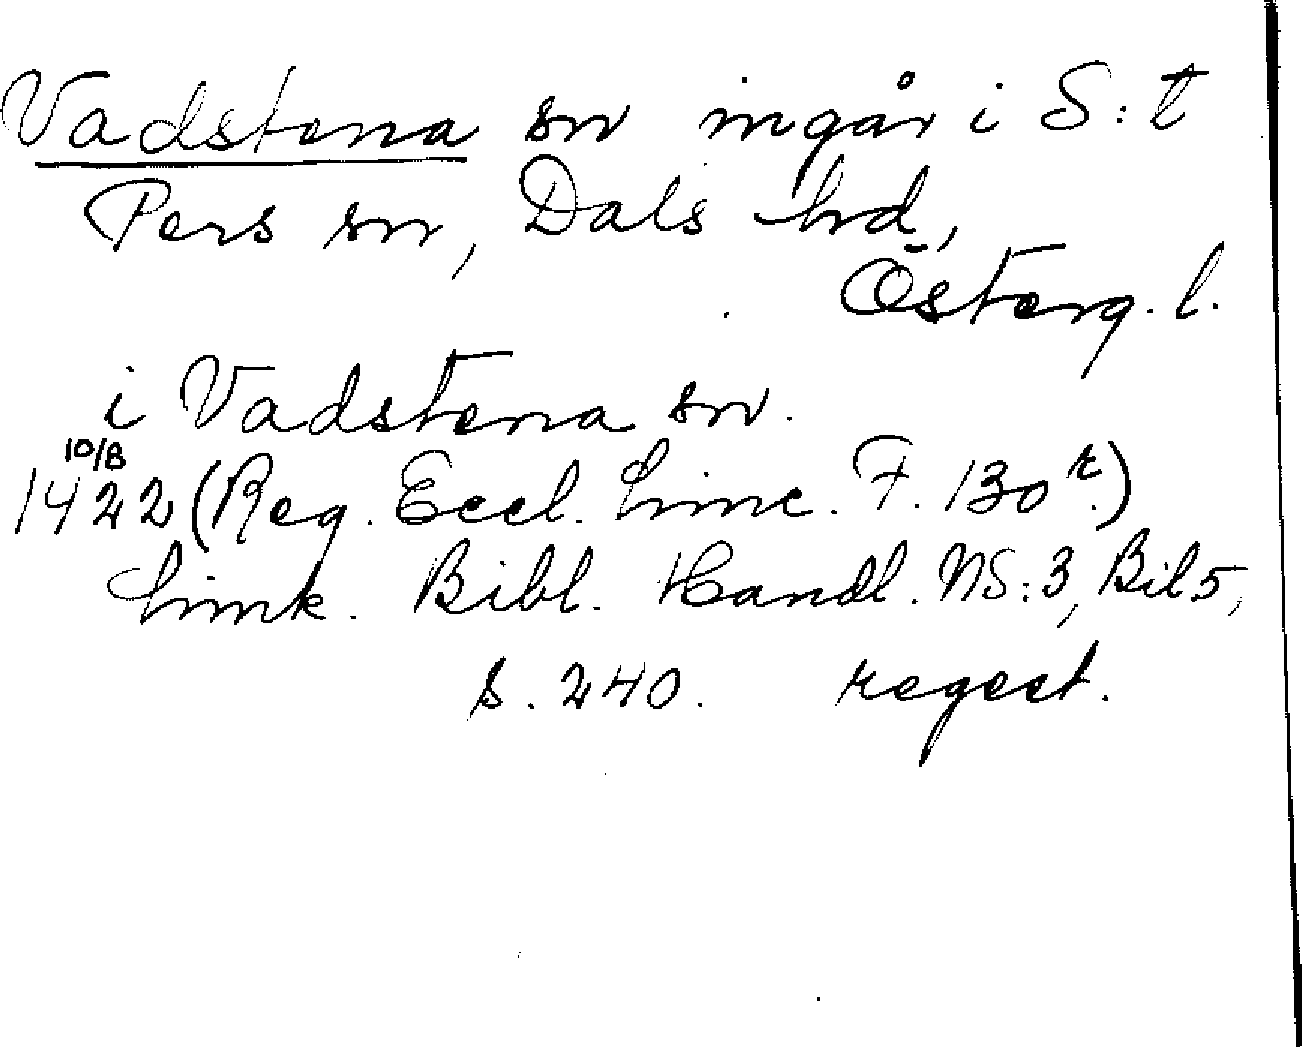 Vadstena sn ingår i S:t
Pers sn, Dals hrd,
Österg. l.
i Vadstena sn.
10/8
1422 (Reg. Eccl. Linc. F. 130 r.)
Link. Bibl. Handl. NS:3, Bil 5,
s. 240. regest.